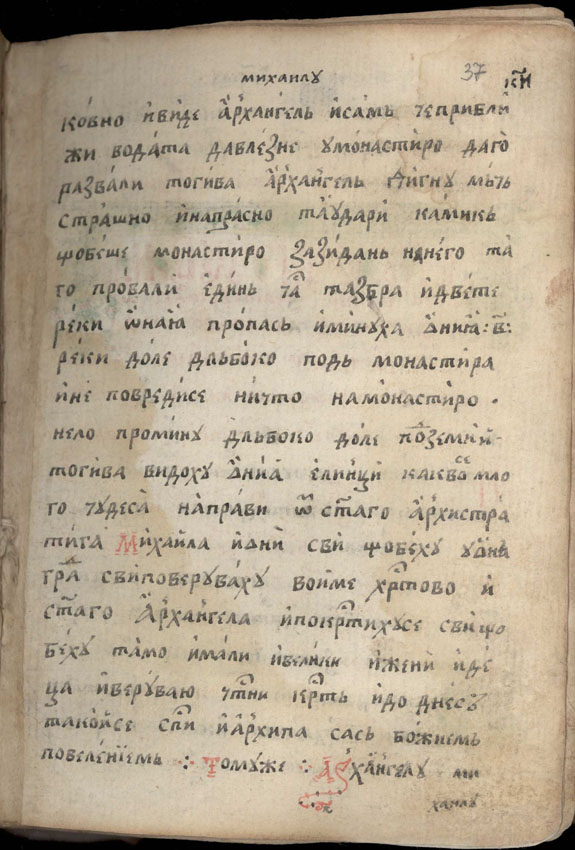 михаилу
37 к҃и
ко́вно и҆виде а҆рха́нгель и҆са́мь че прибли́
жи вода́та давле́зне умонасти́ро даго̀
разва́ли тоги́ва а҆рха́нгель дигну мъчь
стра́шно и҆напра́сно та̀удари̑ ка́микь
щобе́ше монасти́ро зази́дань на́него та
го прова́ли е҆ди́нь ча̑с тазбра̀ и҆две́те
ре́ки ѡ҆наꙗ̀ пропа́сь и҆мину́ха ѡ҆ниꙗ̀ :в҃:
ре́ки до́ле дльбо́ко подь монасти́ра
и҆не повреди́се ничто намона́стиро •
нело промину дльбоко доле поземлӣ
тоги́ва видоху ѡ҆ниꙗ̀ е҆линци каквосе мло
го чудеса̀ напра́ви ѿ ст҃аго а҆рхистра
ти́га Миха́ила и҆дни̑ сви̑ щобе́ху уо҆нꙗ
гра̑д свиповерува́ху вои́ме хр҃тово и҆
ст҃аго А҆рха́нгела и҆покр҃тихусе сви̑що
бе́ху та́мо и҆мали и҆вели́ки и҆жени̑ и҆де
ца и҆ве́руваю ч҃тни кр҃ть и҆до дне́съ
тако́йсе сп҃и и҆А҆рхи́па сась бо́жиемь
повеле́ниемь ⁘ Томуже ⁘ А҆рха́нгелу ми
хаилу